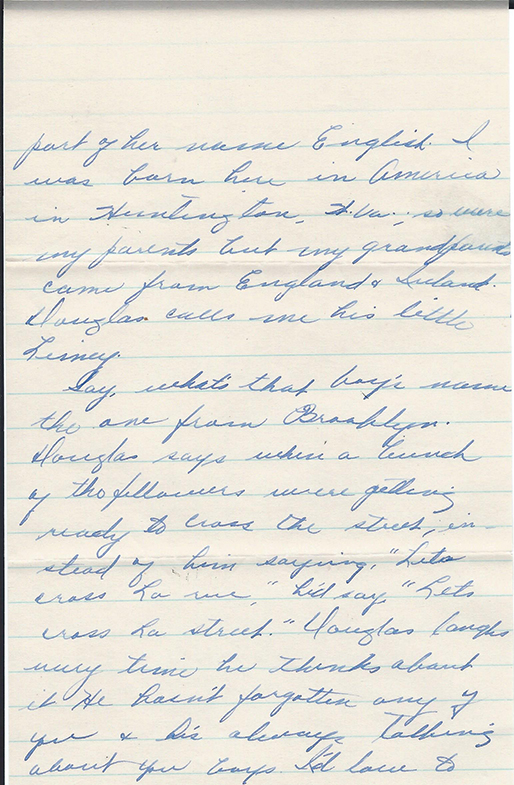 part of her name English. I
was born here in America
in Huntington, W. Va., so were
my parents but my grandparents
came from England & Ireland.
Douglas calls me his little
Limey.
Say, what's that boy's name
the one from Brooklyn.
Douglas says when a bunch
of the fellowers were getting
ready to cross the street, in-
stead of him saying, "Lets
cross La rue," he'd say "Lets
cross La street." Douglas laughs
every time he thinks about
it. He hasn't forgotten any of
you & he's always talking
about you boys. I'd love to